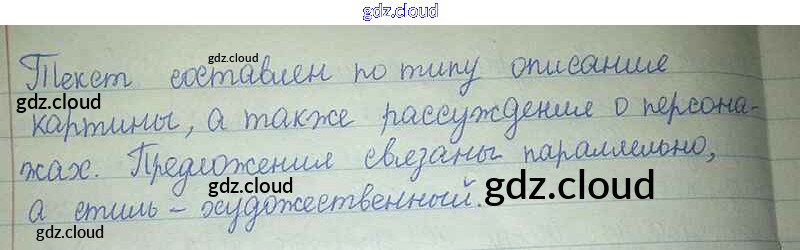 gdz.cloud
gdz.cloud
Текст составлен по типу описание
gdz.cloud
картины, а также рассуждение о персона-
gdz.cloud
жах. Предложения связаны параллельно,
gdz.cloud
gdz.cloud
а стиль – художественный.
gdz.cloud